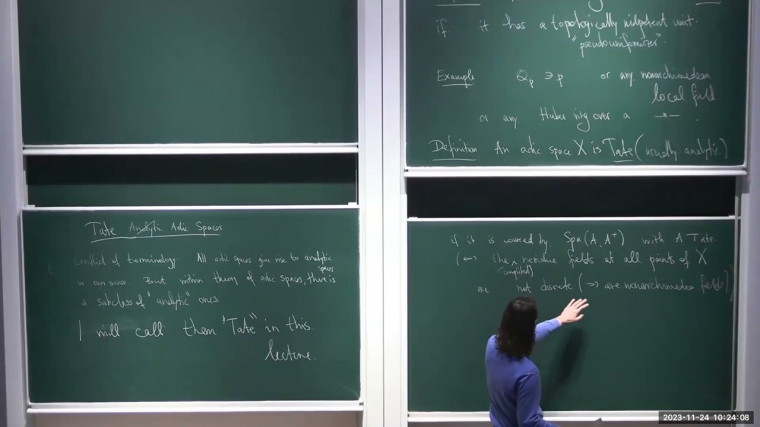 Tate Analytic Adic Spaces
Conflict of terminology. All adic spaces give rise to analytic
spaces
in our sense. But within theory of adic spaces, there is
a subclass of "analytic" ones
I will call them "Tate" in this
lecture.
if it has a topologically nilpotent unit.
"pseudouniformizer".
Example Q_p ∋ p or any nonarchimedean
local field
or any Huber ring over a —"—.
Definition An adic space X is Tate (usually analytic)
if it is covered by Spa(A, A⁺) with A Tate.
(⟺ the residue fields at all points of X
(completed)
are not discrete (⟹ are nonarchimedean fields))
2023-11-24 10:24:08